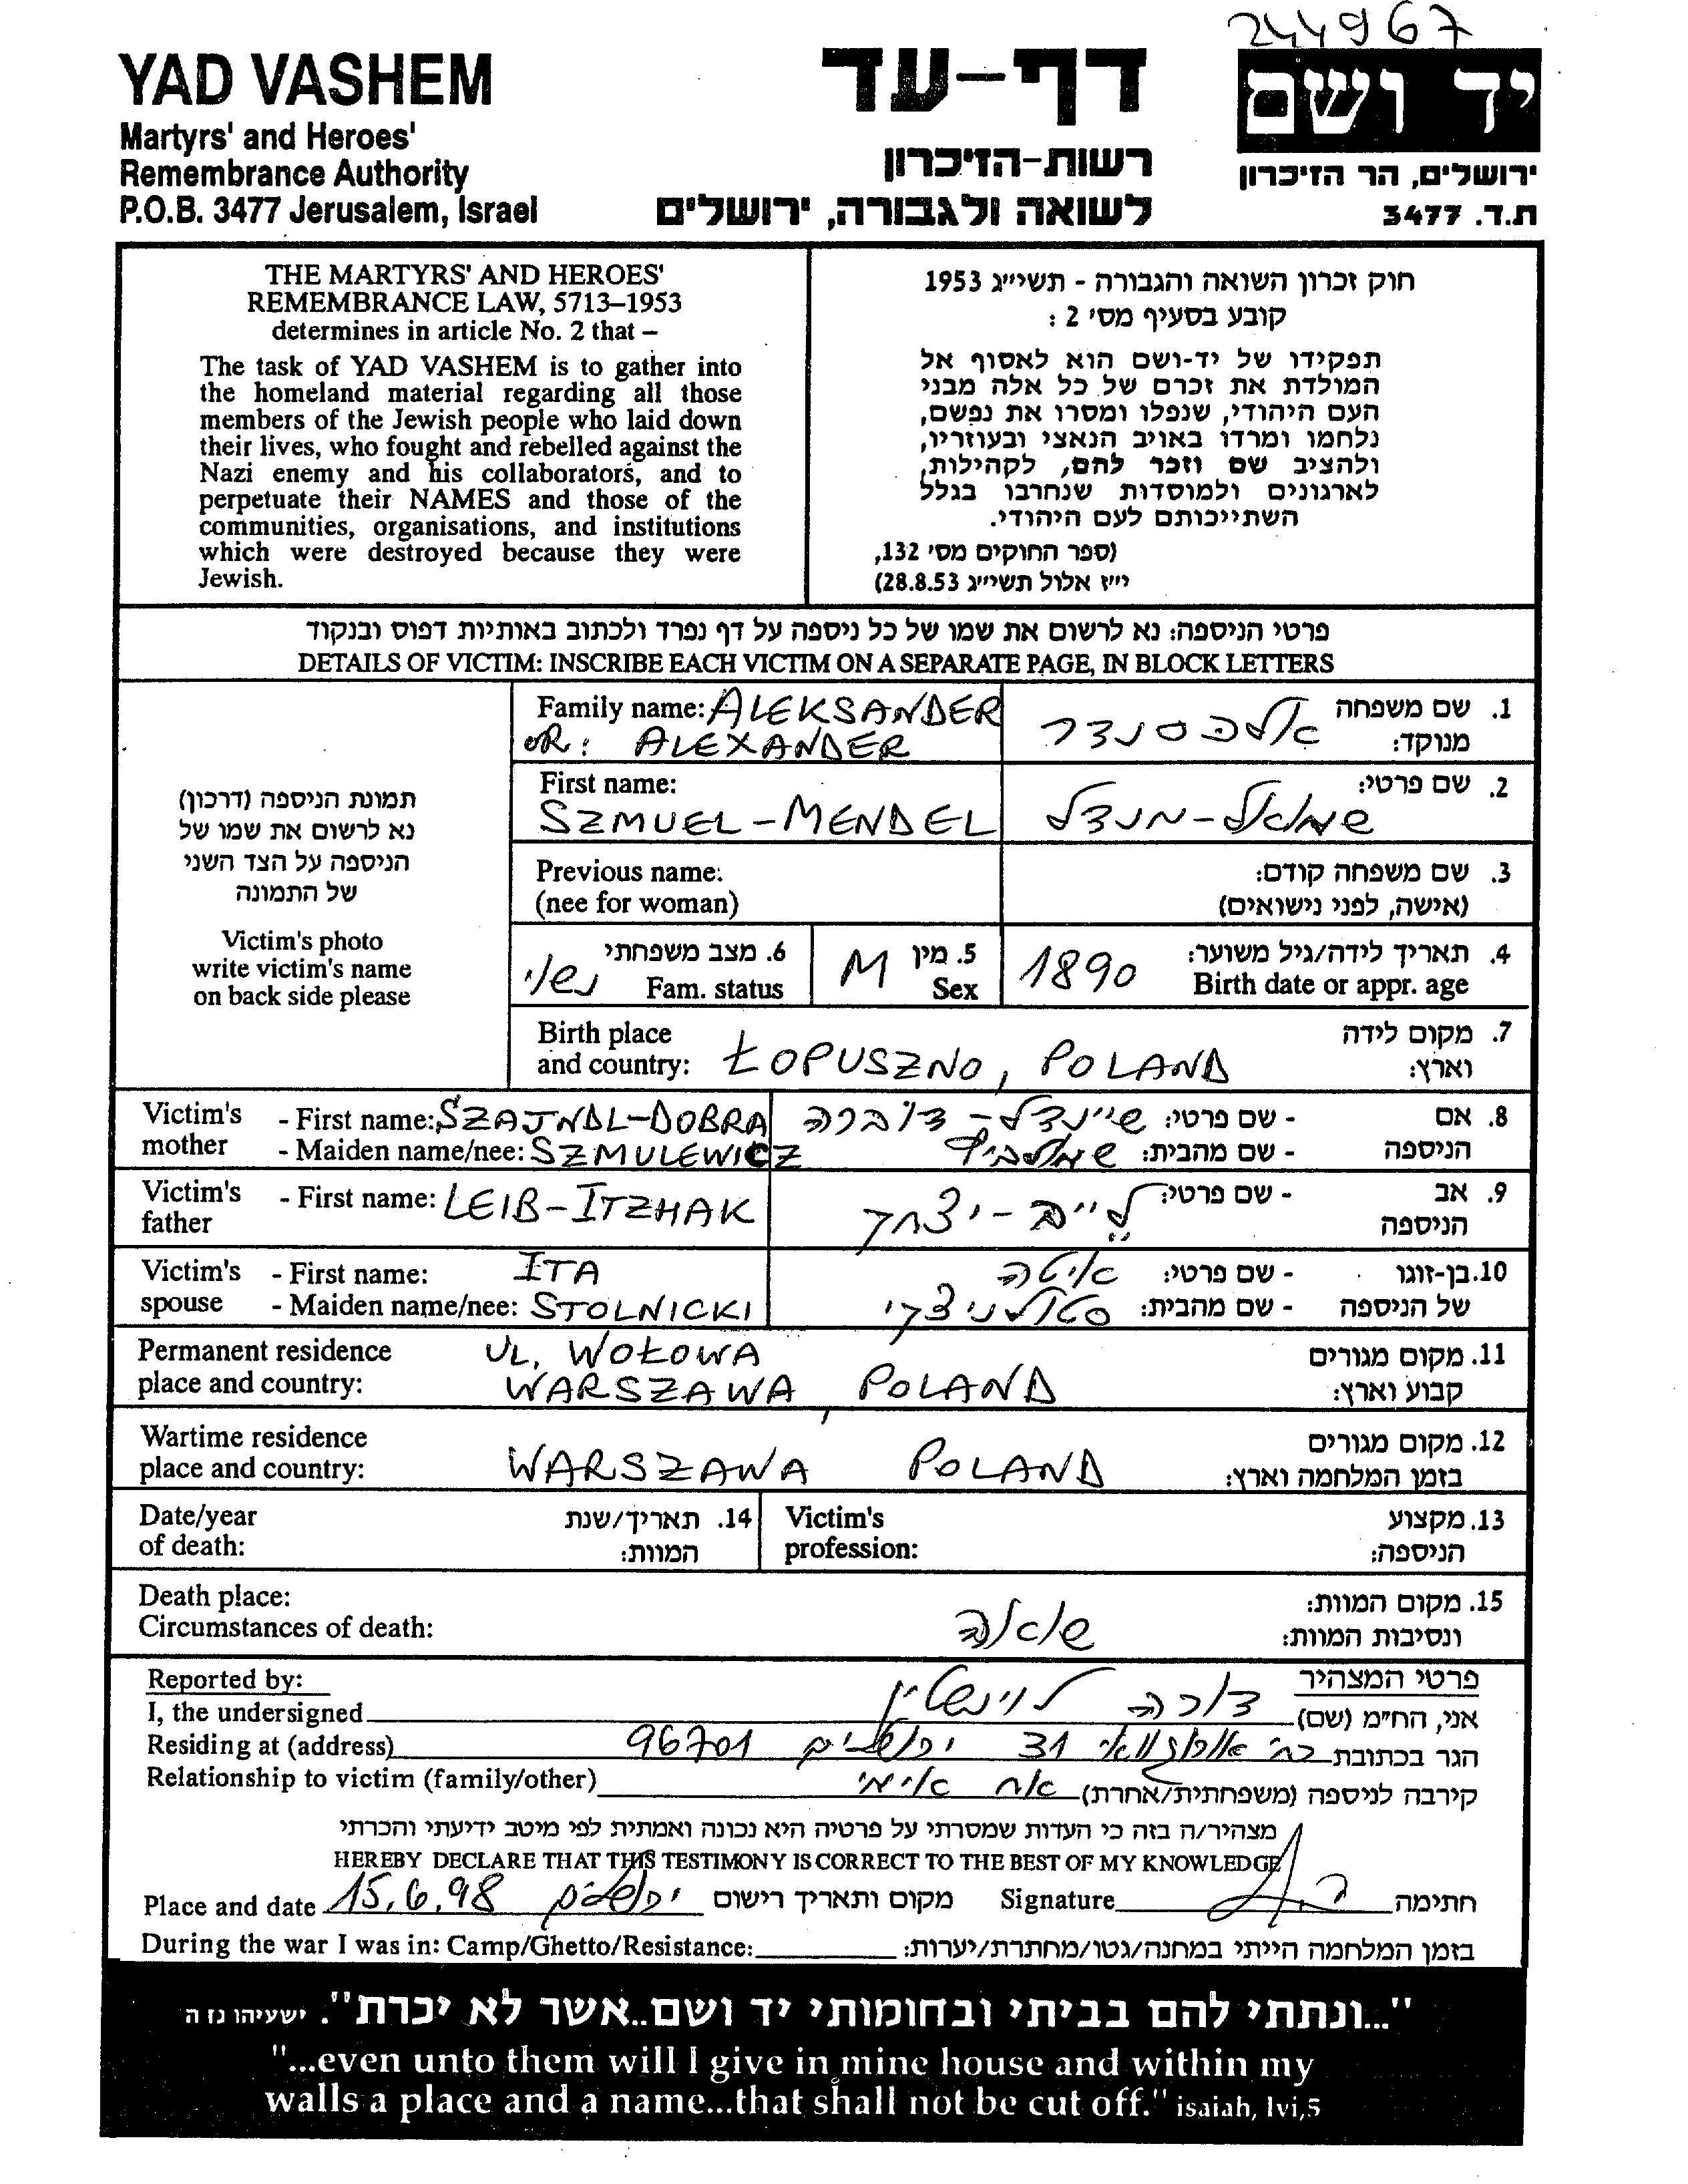 244967
YAD VASHEM
Martyrs' and Heroes'
Remembrance Authority
P.O.B. 3477 Jerusalem, Israel
דף-עד
רשות-הזיכרון
לשואה ולגבורה, ירושלים
יד ושם
ירושלים, הר הזיכרון
ת.ד. 3477
THE MARTYRS' AND HEROES'
REMEMBRANCE LAW, 5713–1953
determines in article No. 2 that –
The task of YAD VASHEM is to gather into
the homeland material regarding all those
members of the Jewish people who laid down
their lives, who fought and rebelled against the
Nazi enemy and his collaborators, and to
perpetuate their NAMES and those of the
communities, organisations, and institutions
which were destroyed because they were
Jewish.
חוק זכרון השואה והגבורה - תשי״ג 1953
קובע בסעיף מס׳ 2 :
תפקידו של יד-ושם הוא לאסוף אל
המולדת את זכרם של כל אלה מבני
העם היהודי, שנפלו ומסרו את נפשם,
נלחמו ומרדו באויב הנאצי ובעוזריו,
ולהציב שם וזכר להם, לקהילות,
לארגונים ולמוסדות שנחרבו בגלל
השתייכותם לעם היהודי.
(ספר החוקים מס׳ 132,
י״ז אלול תשי״ג 28.8.53)
פרטי הניספה: נא לרשום את שמו של כל ניספה על דף נפרד ולכתוב באותיות דפוס ובנקוד
DETAILS OF VICTIM: INSCRIBE EACH VICTIM ON A SEPARATE PAGE, IN BLOCK LETTERS
תמונת הניספה (דרכון)
נא לרשום את שמו של
הניספה על הצד השני
של התמונה
Victim's photo
write victim's name
on back side please
Family name: ALEKSANDER
OR: ALEXANDER
1. שם משפחה
מנוקד: אלכסנדר
First name:
SZMUEL-MENDEL
2. שם פרטי:
שמואל-מנדל
Previous name:
(nee for woman)
3. שם משפחה קודם:
(אישה, לפני נישואים)
6. מצב משפחתי
Fam. status נשוי
5. מין
Sex M
4. תאריך לידה/גיל משוער:
Birth date or appr. age 1890
Birth place
and country: ŁOPUSZNO, POLAND
7. מקום לידה
וארץ:
Victim's - First name: SZAJNDL-DOBRA
mother - Maiden name/nee: SZMULEWICZ
8. אם - שם פרטי: שיינדל-דוברה
הניספה - שם מהבית: שמולביץ
Victim's - First name: LEIB-ITZHAK
father
9. אב - שם פרטי: לייב-יצחק
הניספה
Victim's - First name: ITA
spouse - Maiden name/nee: STOLNICKI
10. בן-זוגו - שם פרטי: איטה
של הניספה - שם מהבית: סטולניצקי
Permanent residence UL. WOŁOWA
place and country: WARSZAWA, POLAND
11. מקום מגורים
קבוע וארץ:
Wartime residence
place and country: WARSZAWA POLAND
12. מקום מגורים
בזמן המלחמה וארץ:
Date/year
of death:
14. תאריך/שנת
המוות:
Victim's
profession:
13. מקצוע
הניספה:
Death place:
Circumstances of death:
15. מקום המוות:
ונסיבות המוות:
שואה
Reported by:
פרטי המצהיר
I, the undersigned
אני, החי״מ (שם) דורה לוינשטיין
Residing at (address)
הגר בכתובת 31 ירושלים 96701
Relationship to victim (family/other)
קירבה לניספה (משפחתית/אחרת) אח אימי
מצהיר/ה בזה כי העדות שמסרתי על פרטיה היא נכונה ואמתית לפי מיטב ידיעתי והכרתי
HEREBY DECLARE THAT THIS TESTIMONY IS CORRECT TO THE BEST OF MY KNOWLEDGE
Place and date 15.6.98 ירושלים מקום ותאריך רישום
Signature חתימה
During the war I was in: Camp/Ghetto/Resistance:
בזמן המלחמה הייתי במחנה/גטו/מחתרת/יערות:
"...ונתתי להם בביתי ובחומותי יד ושם..אשר לא יכרת". ישעיהו נו ה
"...even unto them will I give in mine house and within my
walls a place and a name...that shall not be cut off." isaiah, lvi,5